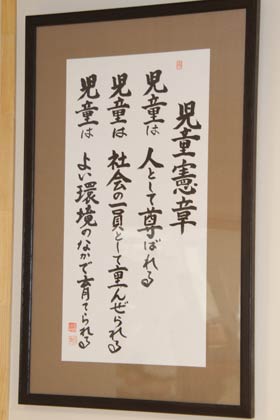 児童憲章
児童は 人として尊ばれる
児童は 社会の一員として重んぜられる
児童は よい環境のなかで育てられる